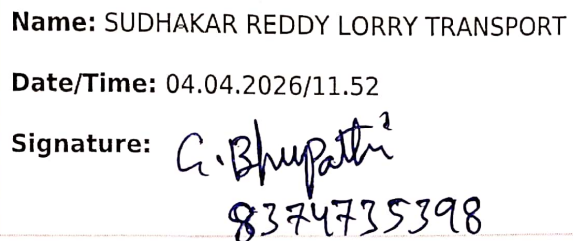 Name: SUDHAKAR REDDY LORRY TRANSPORT
Date/Time: 04.04.2026/11.52
Signature: G.Bhupathi
8374735398